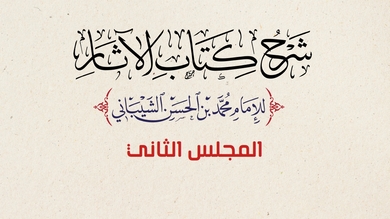 شَرْحُ كِتَابِ الآثَارِ
لِلإِمَامِ مُحَمَّد بْنِ الحَسَنِ الشَّيْبَانِي
المجلس الثاني